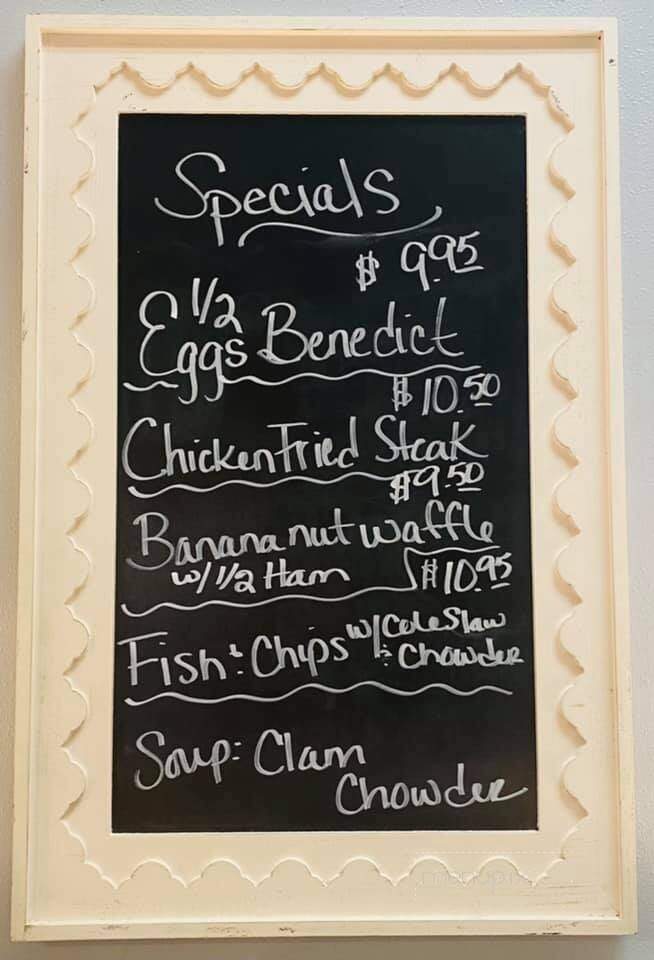 Specials
$ 9.95
1/2
Eggs Benedict
$10.50
Chicken Fried Steak
$9.50
Banana nut waffle
w/ 1/2 Ham
$10.95
Fish & Chips w/ Cole Slaw
& Chowder
Soup: Clam
Chowder